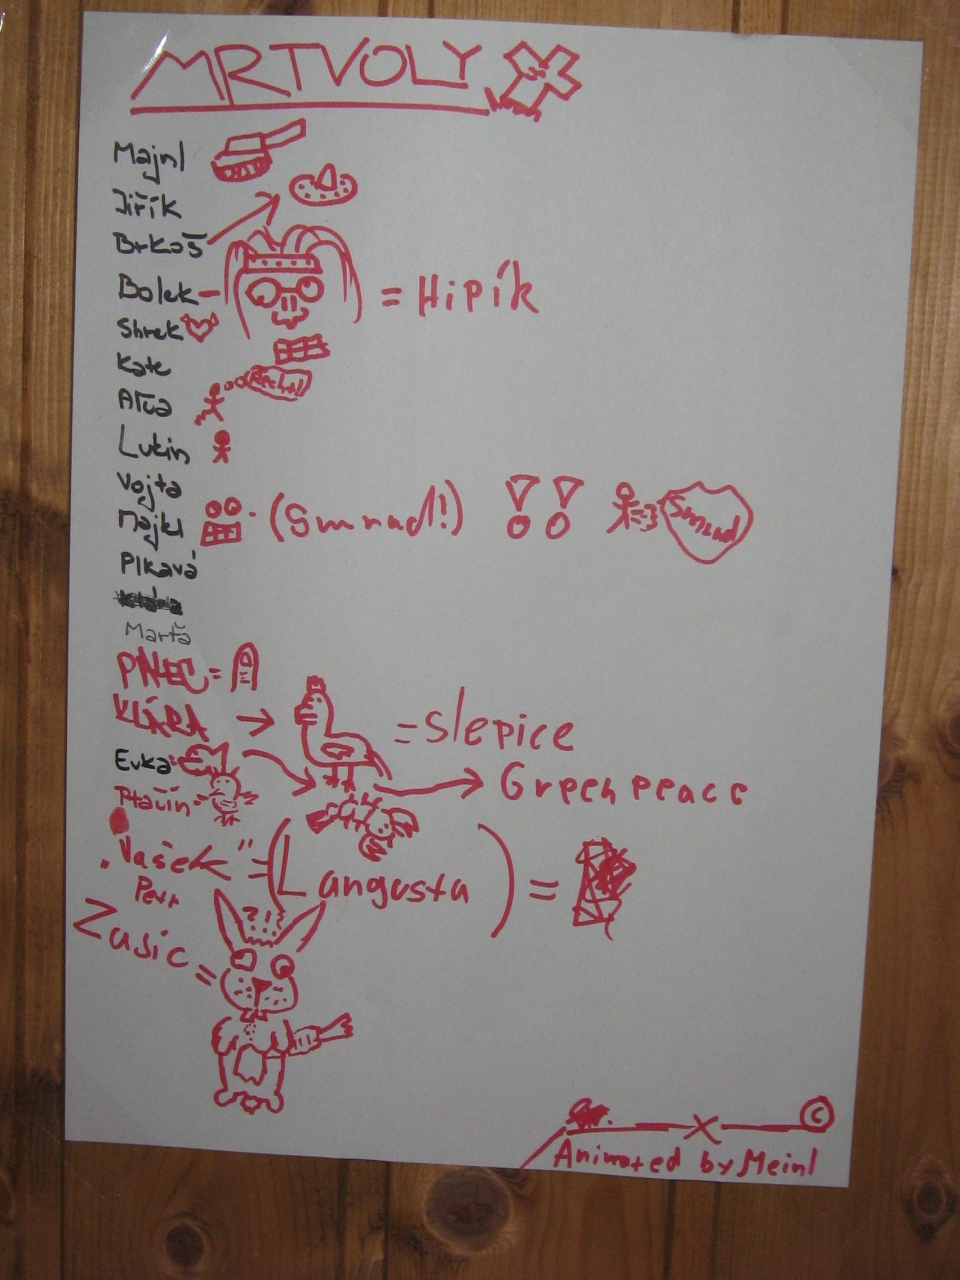 MRTVOLY
Majnl
Jiřík
Brkoš
Bolek = Hipík
Shrek
Kate
Lutin
Vojta
Majkl (Smrad!) Smrad
Plkavá
Marťa
PNEC =
KLÁRA = Slepice
Evka Greenpeace
Ptačín
"Vašek" = (Langusta) =
Petr
Zasic =
©
Animated by Meinl